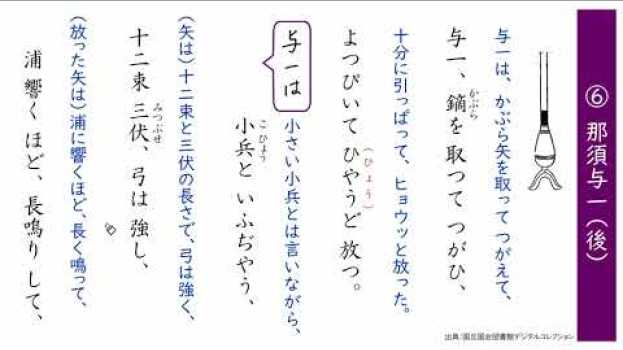 ⑥ 那須与一(後)
与一は、かぶら矢を取って つがえて、
与一、鏑を 取つて つがひ、
かぶら
十分に引っぱって、ヒョウッと放った。
よつぴいて ひやうど 放つ。
(ひょう)
与一は
小さい小兵とは言いながら、
小兵と いふぢやう、
こひょう
(矢は)十二束と三伏の長さで、弓は強く、
十二束 三伏、弓は 強し、
みつぶせ
(放った矢は)浦に響くほど、長く鳴って、
浦 響く ほど、長鳴り して、
出典/国立国会図書館デジタルコレクション